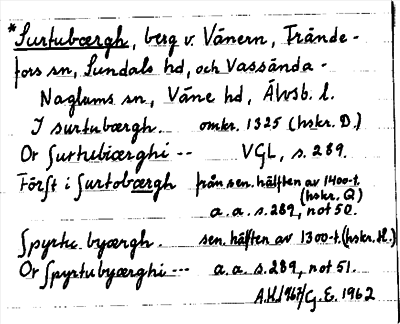 *Surtubærgh, berg v. Vänern, Frände-
fors sn, Sundals hd, och Vassända-
Naglums sn, Väne hd, Älvsb. l.
I surtubærgh. omkr. 1325 (hskr. D.)
Or surtubiærghi -- VGL, s. 289.
Förſt i ſurtobærgh från sen. hälften av 1400-t.
(hskr. Q)
a.a. s. 289, not 50.
ſpyrtu byærgh. sen. hälften av 1300-t. (hskr. H.)
Or ſpyrtubyærghi --- a.a. s. 289, not 51.
A.H. 1967/G.E. 1962